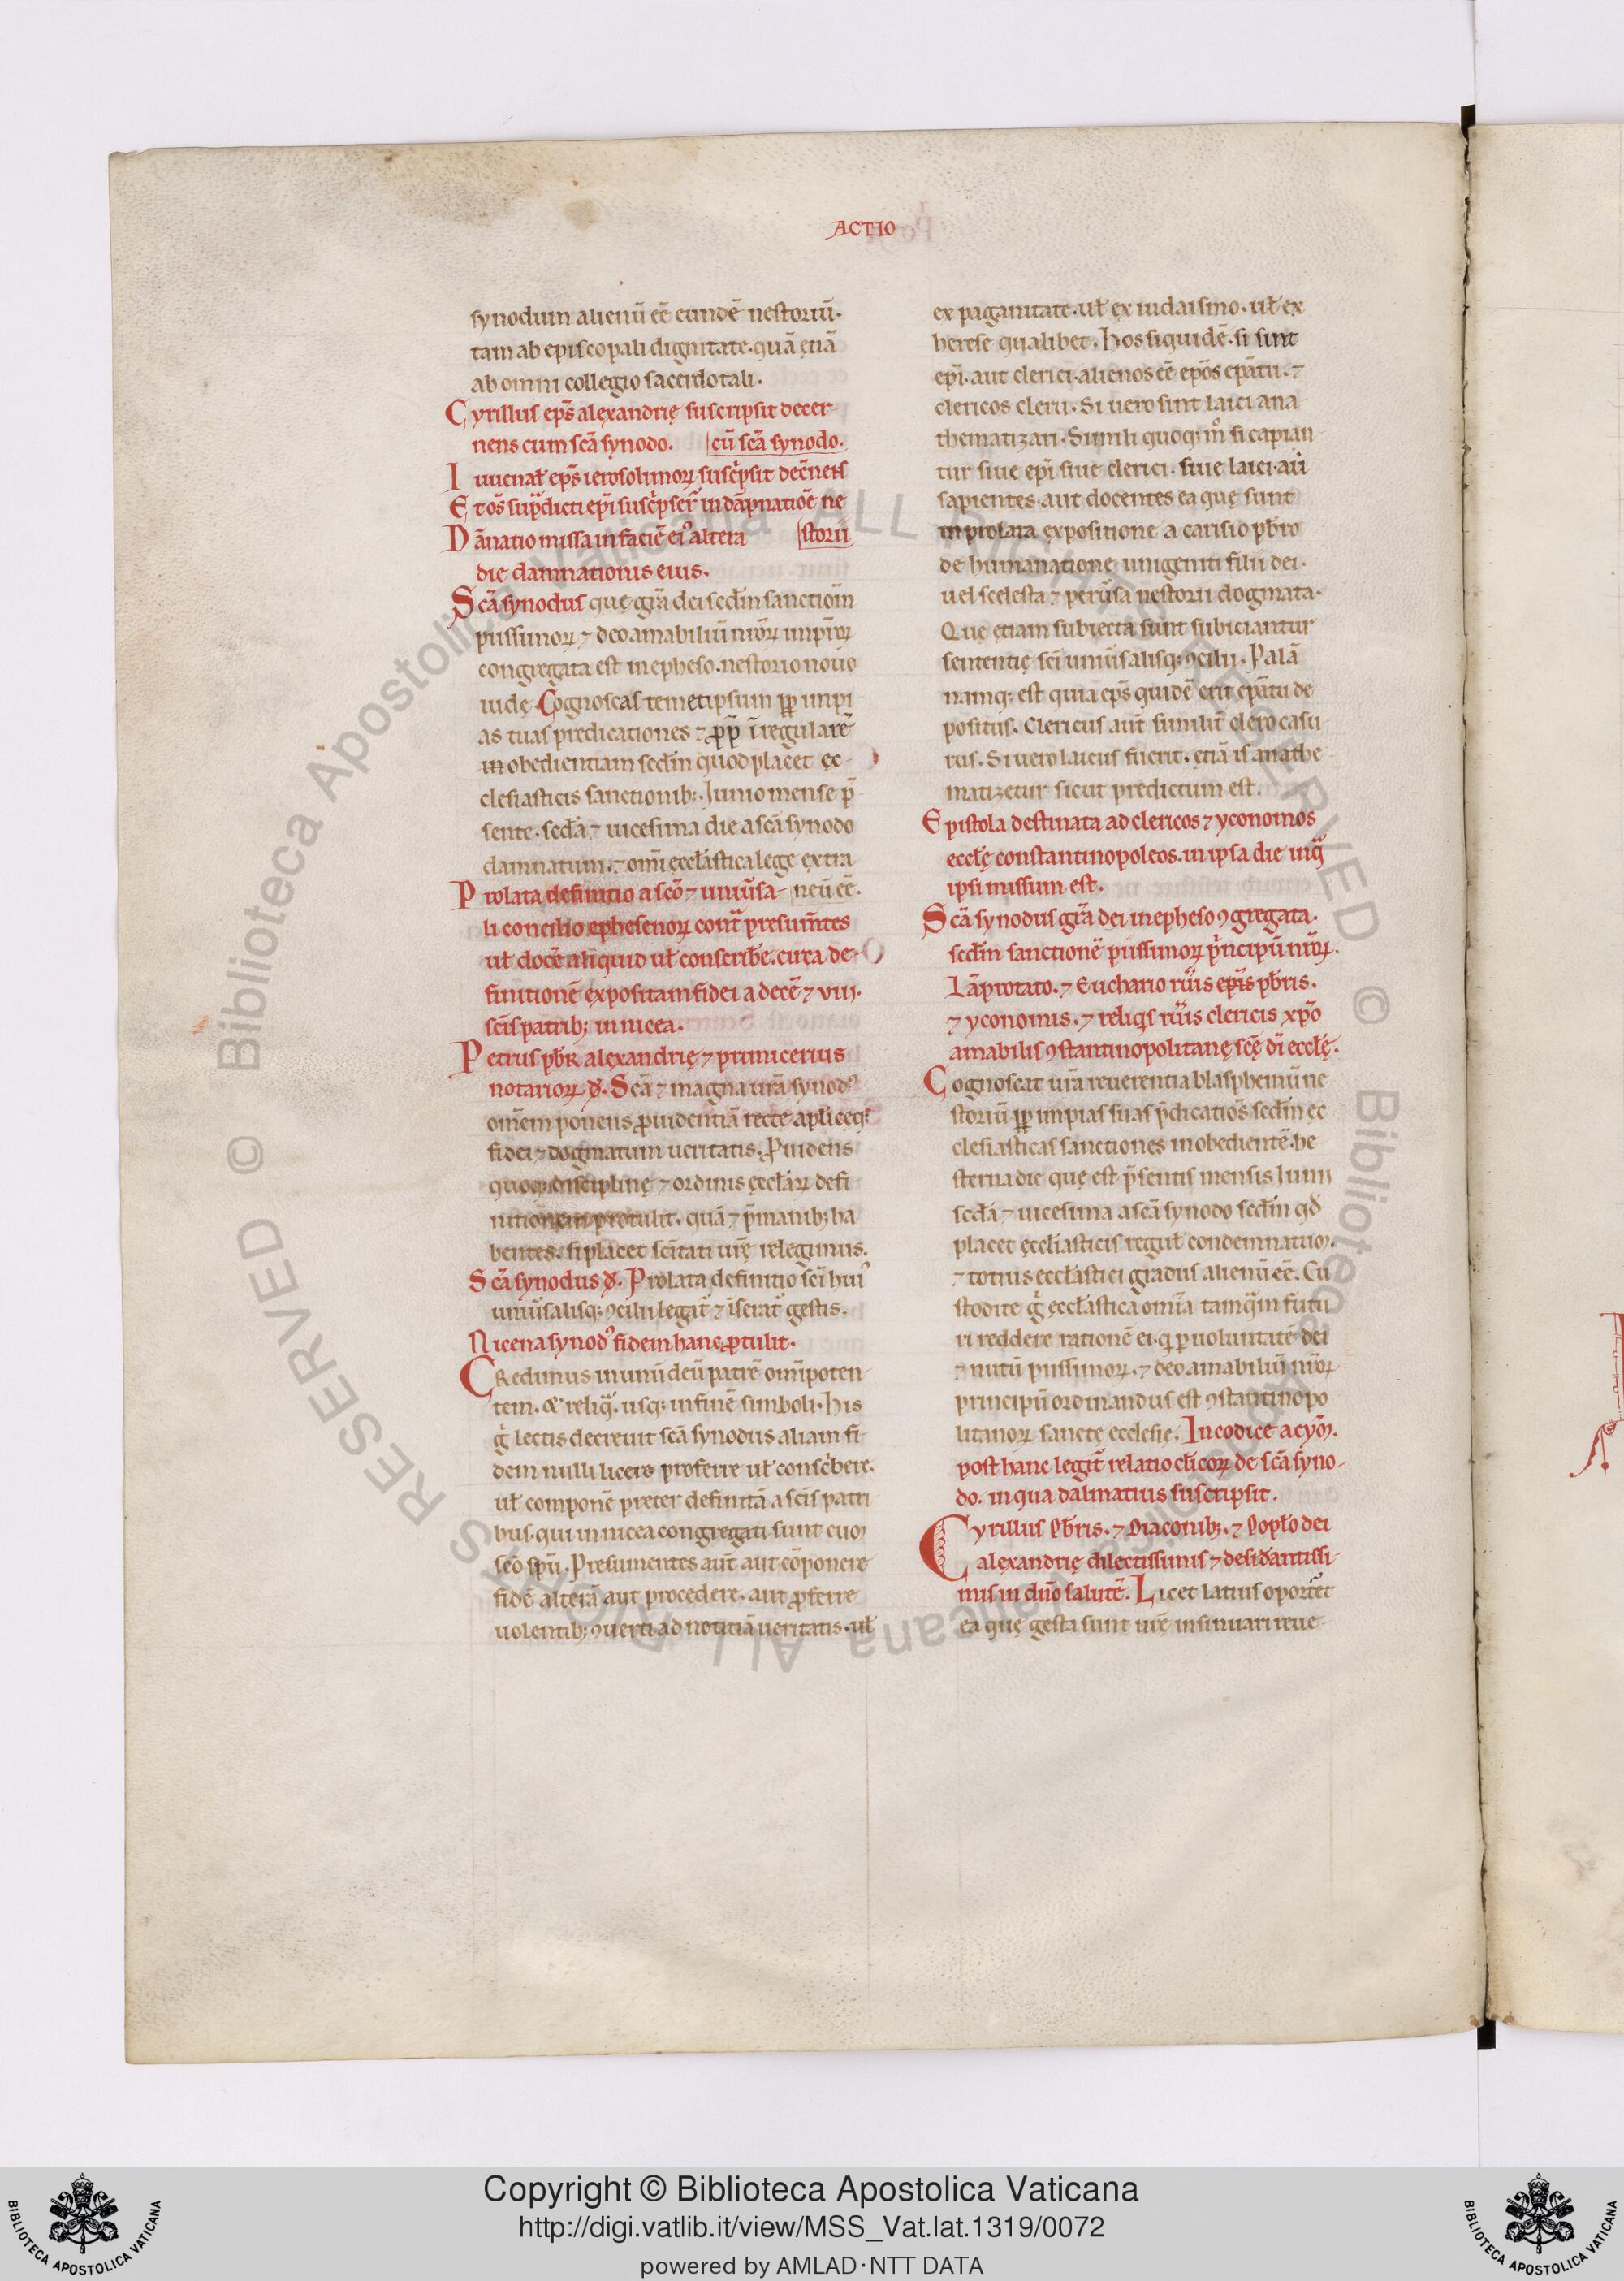 ACTIO
synodum alienū eē eundē nestoriū.
tam ab episcopali dignitate. quā etiā
ab omni collegio sacerdotali.
Cyrillus ep̄s alexandrię suscripsit decer
nens cum scā synodo. cū scā synodo.
Iuuenał ep̄s ierosolimoꝝ suscͥpsit dec̄nens
Et oēs sup̄dicti ep̄i suscͥpser̄ in dāpnatiōē ne
Dānatio missa in faciē eiꝰ altera storii
die damnationis eius.
Scā synodus quę gr̄a dei sedm̄ sanctioīn
piissimoꝝ ⁊ deo amabiliū nr̄oꝝ imp̄roꝝ
congregata est in epheso. nestorio nouo
iudę. Cognoscas temetipsum ꝓp̄ impi
as tuas predicationes ⁊ ꝓp̄ īregularē
in obedientiam sedm̄ quod placet ęc
clesiasticis sanctionib;. Iunio mense p̄
sente. secd̄a ⁊ uicesima die a scā synodo
damnatum. ⁊ omī ęccłastica lege extra
Prolata definitio a scō ⁊ uniūsa- neū eē.
li concilio ephesenoꝝ cont͂ presum̄tes
uł docē aliquid uł conscribē. circa de-
finitionē expositam fidei a decē ⁊ viii.
scīs patrib; in nicea.
Petrus pb̄r alexandrię ⁊ primicerius
notarioꝝ. đ. Scā ⁊ magna ur̄a synodꝰ
omēm ponens ꝓuidentiā recte apłiceq;
fidei ⁊ dogmatum ueritatis. Puidens
quoq; disciplinę ⁊ ordinis ęccłaꝝ defi
nitionem protulit. quā ⁊ p̄manib; ha
bentes. si placet sc̄itati ur̄ę relegimus.
Scā synodus đ. Prolata definitio scī huiꝰ
uniūsalisq; ꝯcilii legat̄ ⁊ īserat̄ gestis.
Nicena synodꝰ fidem hanc ꝓtulit.
CRedimus in unū deū patrē omīpoten
tem. & reliq̄. usq; in finē simboli. His
gͥ lectis decreuit scā synodus aliam fi
dem nulli licere proferre uł conscͥbere.
uł componē preter definitā a scīs patri
bus. qui in nicea congregati sunt cum
scō spū. Presumentes aut̄ aut cōponere
fidē alterā aut procedere. aut ꝓferre
uolentib; ꝯuerti ad notitiā ueritatis. uł
ex paganitate. uł ex iudaismo. uł ex
herese qualibet. Hos siquidē. si sint
ep̄i. aut clerici. alienos eē ep̄os ep̄atu. ⁊
clericos cleru. Si uero sint laici ana
thematizari. Simili quoq; mº si capian
tur siue ep̄i siue clerici. siue laici. aū
sapientes. aut docentes ea quę sunt
in prolata expositione a carisio pb̄ro
de humanatione unigeniti filii dei.
uel scelesta ⁊ perūsa nestorii dogmata.
Que etiam subiecta sunt subiciantur
sententię scī uniūsalisq; ꝯcilii. Palā
namq; est quia ep̄s quidē erit ep̄atu de
positus. Clericus aut̄ similit̄ clero casu
rus. Si uero laicus fuerit. etiā is anathe
matizetur sicut predictum est.
Epistola destinata ad clericos ⁊ yconomos
eccłę constantinopoleos. in ipsa die in q̄
ipsi missum est.
Scā synodus gr̄a dei in epheso ꝯgregata.
sedm̄ sanctionē piissimoꝝ pͥncipū nr̄oꝝ.
Lāprotato. ⁊ Euchario rūis ep̄is pb̄ris.
⁊ yconomis. ⁊ reliqͥs rūis clericis xp̄o
amabilis ꝯstantinopolitanę scē dī eccłę.
Cognoscat ur̄a reuerentia blasphemū ne
storiū ꝓp̄ impias suas p̄dicatioēs sedm̄ ec
clesiasticas sanctiones inobedientē. he
sterna die quę est p̄sentis mensis Iunii
secd̄a ⁊ uicesima a scā synodo sedm̄ qđ
placet ęccłiasticis reguł condemnatum.
⁊ totius eccłastici gradus alienū eē. Cu
stodite gͥ ęccłastica om̄ia tamq̄m futu
ri reddere rationē ei. qͥ ꝑ uoluntatē dei
⁊ nutū piissimoꝝ. ⁊ deo amabiliū nr̄oꝝ
principū ordinandus est ꝯstantinopo
litanoꝝ sanctę ecclesię. In codice acym̄.
post hanc legit̄ relatio cłicoꝝ de scā syno-
do. in qua dalmatius suscripsit.
Cyrillus Pb̄ris. ⁊ Diaconib;. ⁊ Popło dei
alexandrię dilectissimis ⁊ desiđantissi-
mis in dn̄o salutē. Licet latius oportet
ea quę gesta sunt ur̄ę insinuari reue
© Biblioteca Apostolica Vaticana ALL RIGHTS RESERVED © Biblioteca Apostolica Vaticana ALL RIGHTS RESERVED
Copyright © Biblioteca Apostolica Vaticana
http://digi.vatlib.it/view/MSS_Vat.lat.1319/0072
powered by AMLAD·NTT DATA
BIBLIOTECA APOSTOLICA VATICANA
BIBLIOTECA APOSTOLICA VATICANA